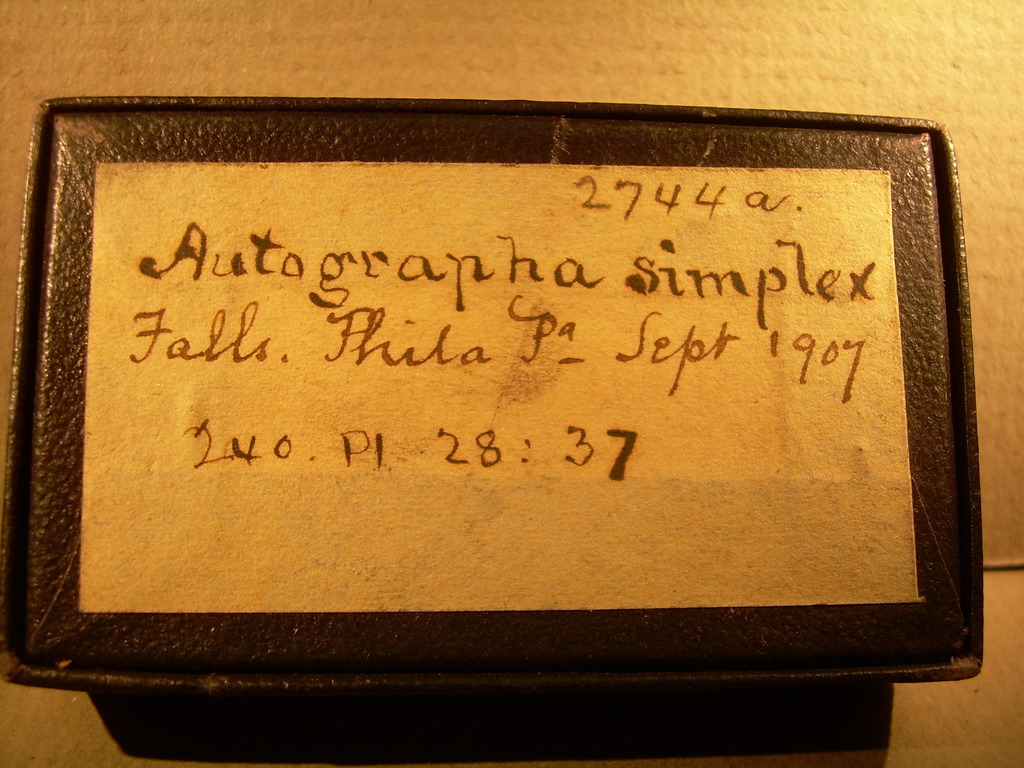 2744a.
Autographa simplex
Falls. Phila Pa Sept 1907
240. Pl 28: 37